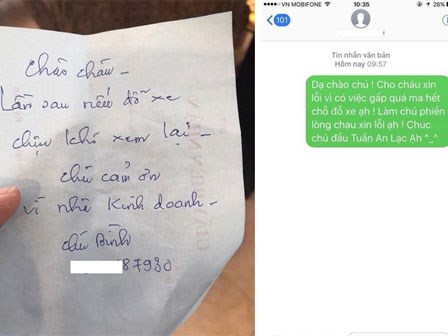 Chào cháu -
Lần sau nếu đỗ xe
chịu khó xem lại -
chú cảm ơn
vì nhà Kinh doanh -
chú Bình
87930
VN MOBIFONE
10:35
26%
101
Tin nhắn văn bản
Hôm nay 09:57
Dạ chào chú ! Cho cháu xin
lỗi vì có việc gấp quá mà hết
chỗ đỗ xe ạh ! Làm chú phiền
lòng chau xin lỗi ah ! Chuc
chú đầu Tuần An Lạc Ah ^_^